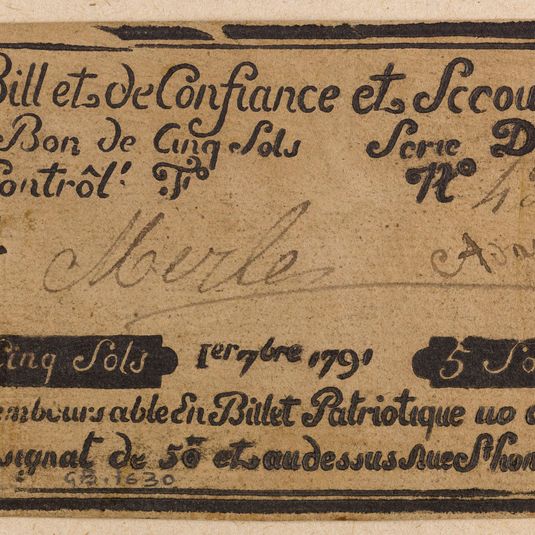 Billet de Confiance et Secou
Bon de Cinq Sols Serie D
Contrôl. F.º Nº 42
Merle
Cinq Sols 1er 7bre 1791 5 So
emboursable En Billet Patriotique ou
signat de 5ʰ et audessus Rue St hon
GB.1630